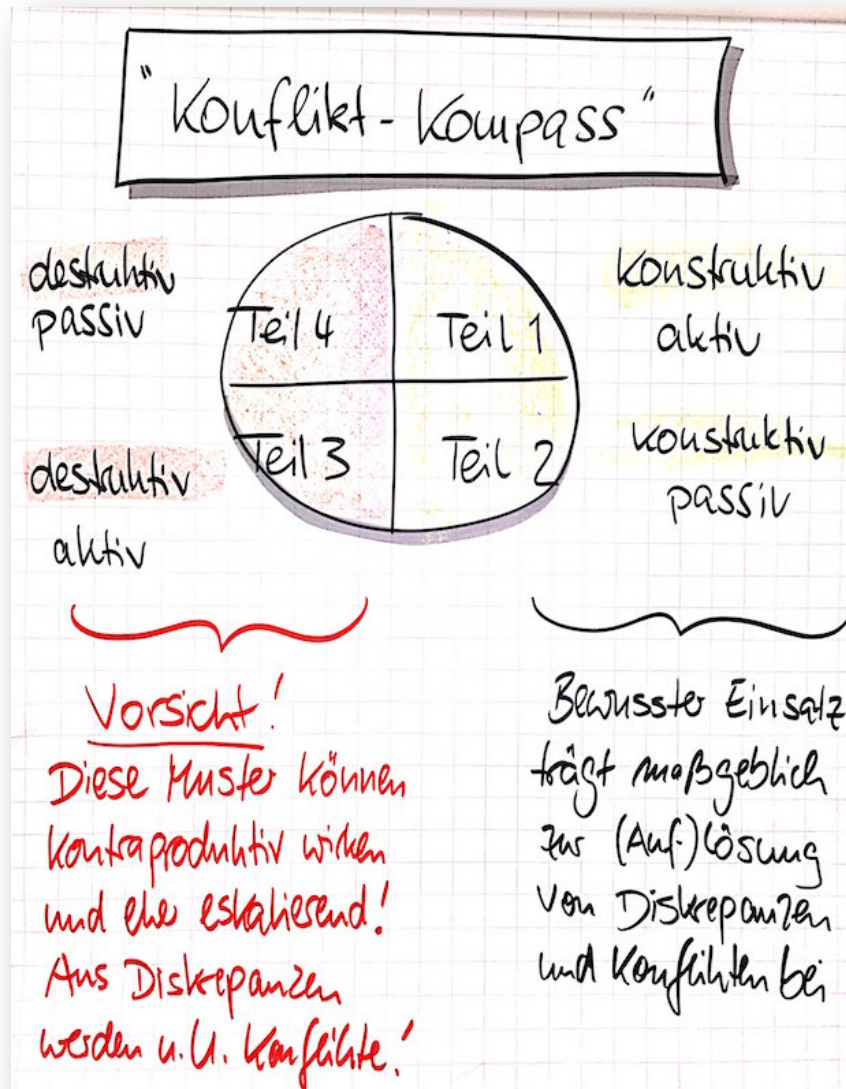 "Konflikt-Kompass"
destruktiv
passiv
Teil 4
Teil 1
konstruktiv
aktiv
destruktiv
aktiv
Teil 3
Teil 2
konstruktiv
passiv
Vorsicht!
Diese Muster können
kontraproduktiv wirken
und eher eskalierend!
Aus Diskrepanzen
werden u.U. Konflikte!
Bewusster Einsatz
trägt maßgeblich
zur (Auf-)Lösung
von Diskrepanzen
und Konflikten bei